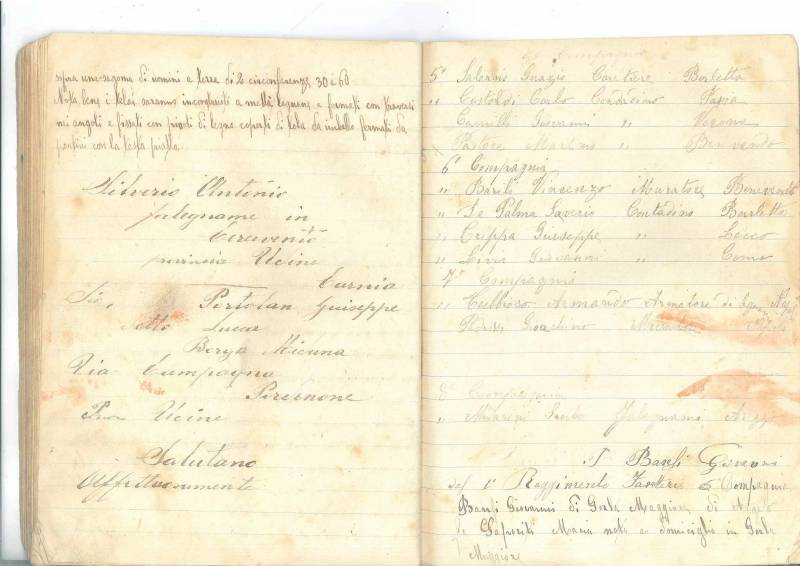 sopra una segoma di uomini e terra di 2 circonferenze 30 e 60
Nota bene i telai saranno incorgiuniti a mettà legname e formati con
angoli e fissati con pivoti di legno coperti di tela da imballo fermati da
pontine con la testa piatta
Silverio Antonio
falegname in
Ceravento
provinsia Udine
Carnia
Sio, Portolan Guiseppe
detto Lucca
Borgo Micuna
Via Campagna
Porernone
Prov Udine
Salutano
Affettuosamente
Compagnia
5ª Salerno Gnazio Caretiere Barletta
„ Castoldi Carlo Contadino Pavia
Camilli Giovanni „ Verona
Pastore Martino „ Benevendo
6ª Compagnia
„ Barili Vincenzo Muratore Benevento
„ De Palma Saverio Contadino Barletta
„ Crippa Giuseppe „ Lecco
„ Livio Giovanni „ Como
7ª Compagnia
„ Armando Armatore di
Gioachino
8ª Compagnia
„ Santo Falegname Arezzo
Banfi Giovanni
del 1º Reggimento Fanteria 6 Compagnia
Banfi Giovanni di Gorla Maggiore di Angelo
e Saporiti Maria nato e domiciglio in Gorla
Maggiore